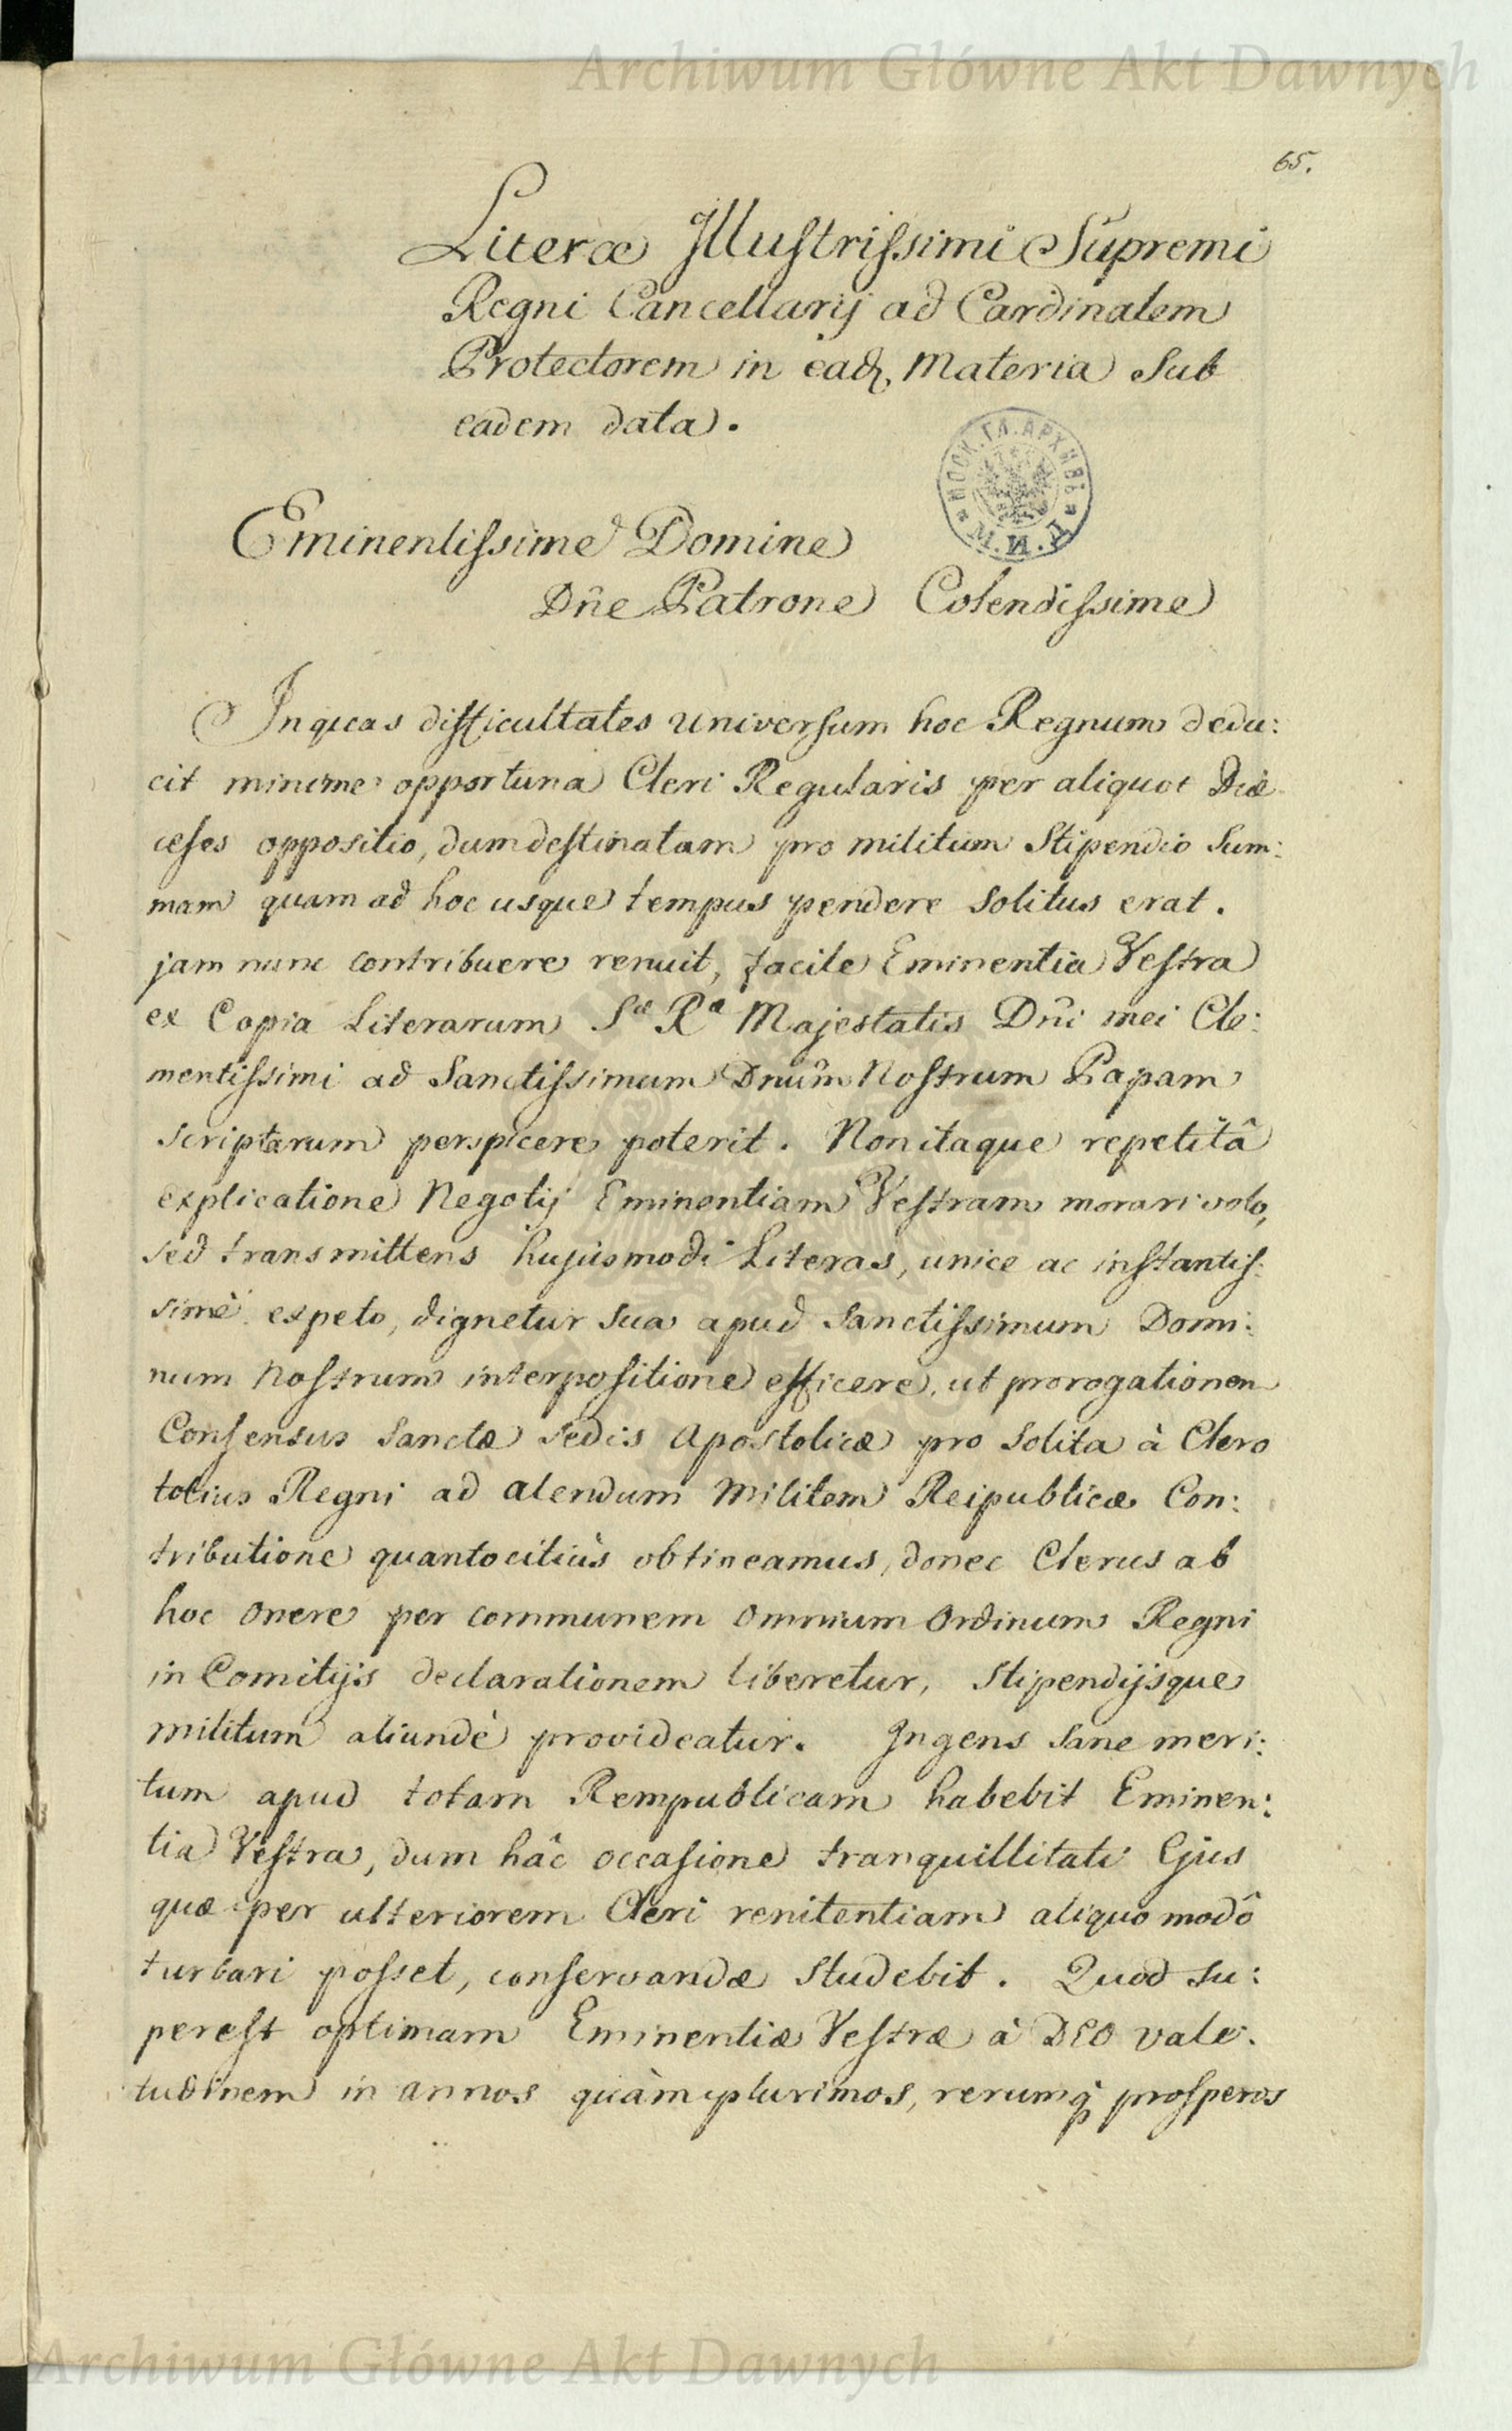 Archiwum Główne Akt Dawnych
65.
Literæ Illustrissimi Supremi
Regni Cancellarij ad Cardinalem
Protectorem in eadq, Materia Sub
eadem data.
МОСК.ГЛ.АРХИВЪ
М.И.Д.
Eminentissime Domine
Dñe Patrone Colendissime
In quas difficultates universum hoc Regnum dedu:
cit minime opportuna Cleri Regularis per aliquot Diæ
ceses oppositio, dum destinatam pro militum Stipendio Sum:
mam quam ad hoc usque tempus pendere solitus erat.
jam nunc contribuere renuit, facile Eminentia Vestra
ex Copia Literarum Sæ Ræ Majestatis Dñi mei Cle:
mentissimi ad Sanctissimum Dnum̃ Nostrum Papam
scriptarum perspicere poterit. Non itaque repetitâ
explicatione Negotij Eminentiam Vestram morari volo,
sed transmittens hujusmodi Literas, unice ac instantis:
simè expeto, dignetur sua apud Sanctissimum Domi:
num Nostrum interpositione efficere, ut prorogationem
Consensus Sanctæ Sedis Apostolicæ pro Solita à Clero
totius Regni ad alendum Militem Reipublicæ Con:
tributione quantocitiùs obtineamus, donec Clerus ab
hoc onere per communem omnium Ordinum Regni
in Comitijs declarationem liberetur, Stipendijsque
militum aliundè provideatur. Ingens sane meri:
tum apud totam Rempublicam habebit Eminen:
tia Vestra, dum hâc occasione tranquillitati Ejus
quæ per ulteriorem Cleri renitentiam aliquo modô
turbari posset, conservandæ studebit. Quod su:
perest optimam Eminentiæ Vestræ à DEO vale:
tudinem in annos quàm plurimos, rerumq̃ prosperos
Archiwum Główne Akt Dawnych